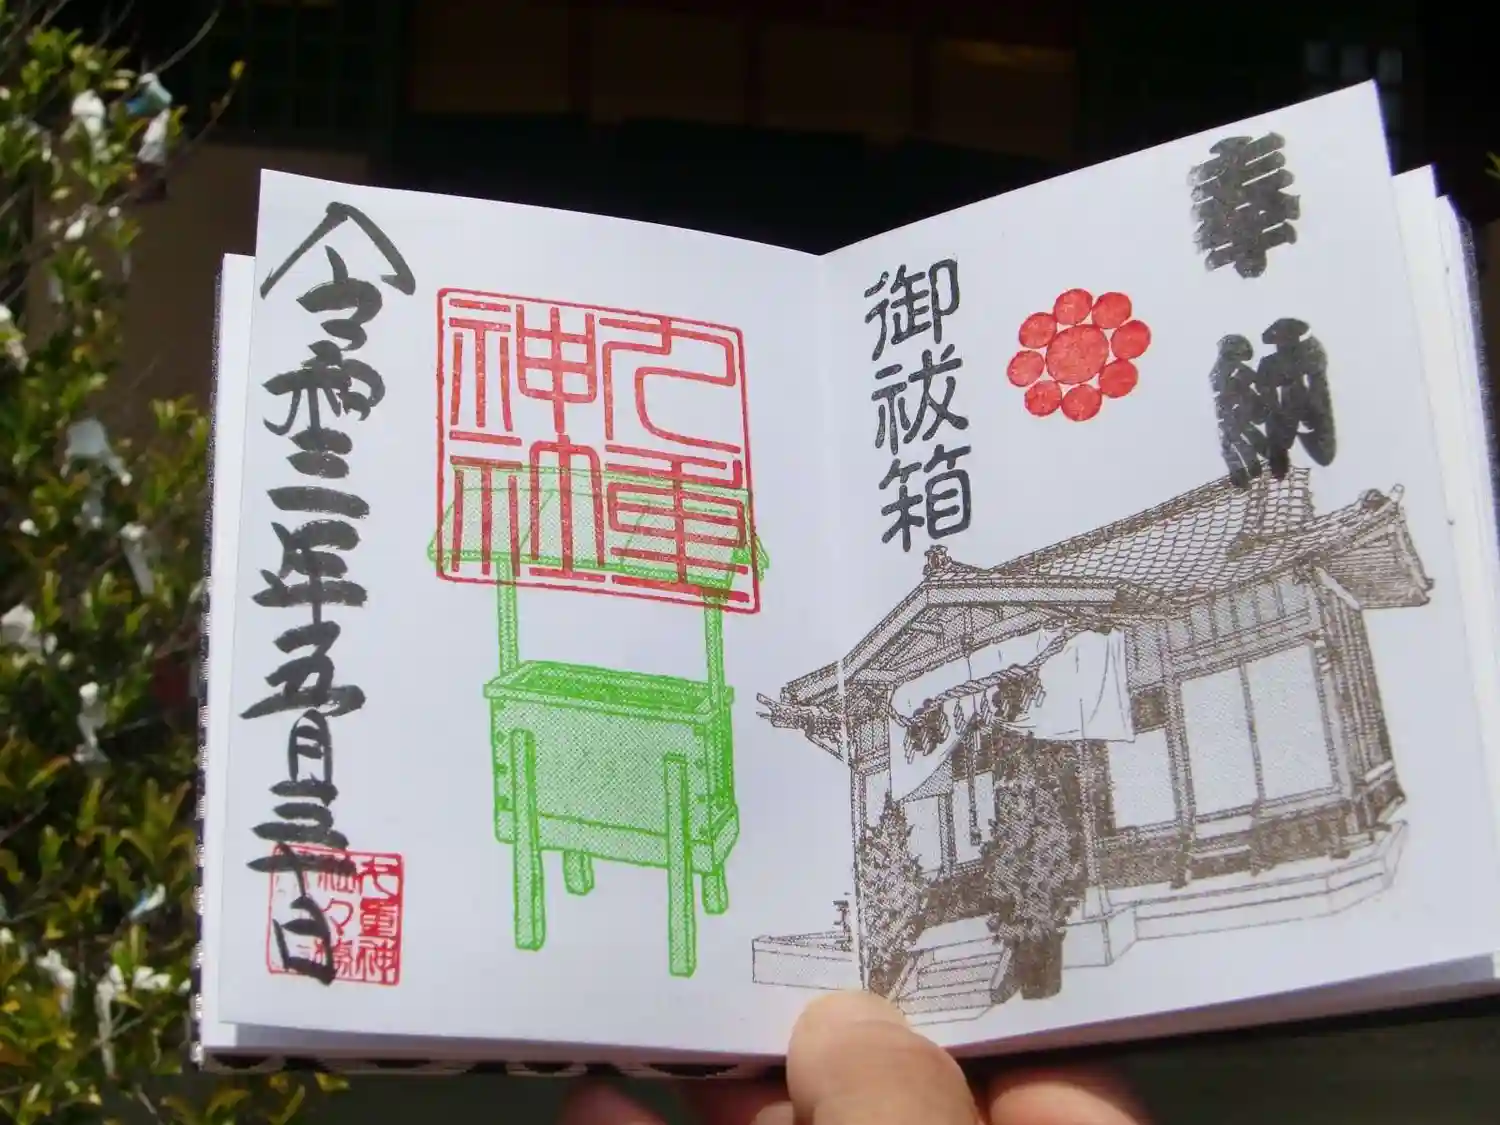 奉納
御祓箱
九重
神社
令和三年五月三十日
九重神
社々務